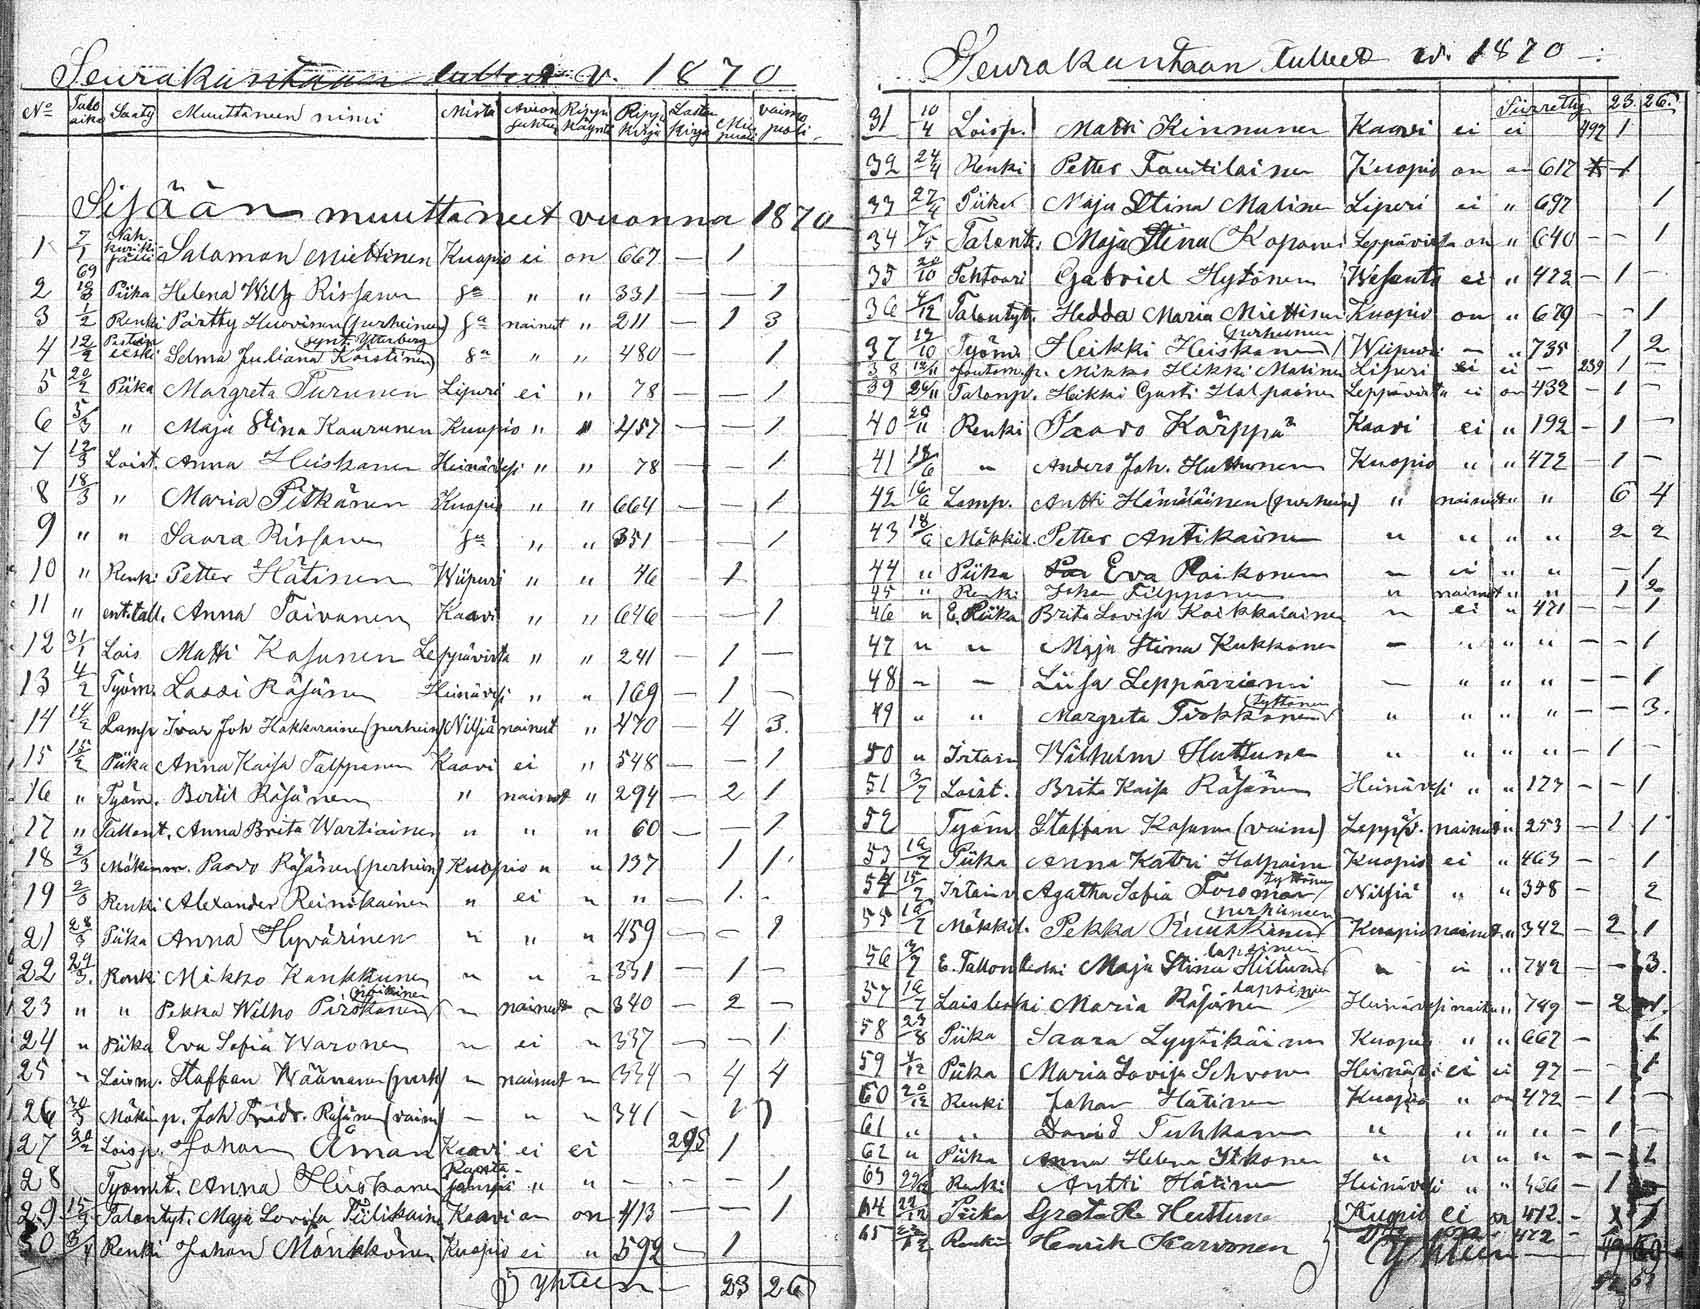 Seurakuntaan tulleet v. 1870
No Tulo aika Sääty Muuttaneen nimi Mistä Avion suhte Rippi käynti Rippi kirja Lasten kirja Mies puoli vaimo puoli
Sisään muuttaneet vuonna 1870
1 7/1 Salomon Miettinen Kuopio ei on 667 — 1
2 Piika Helena Wilh Rissanen " " 331 — — 1
3 1/2 Renki Pärtty Huovinen (perheinen) nainut " 211 — 1 3
4 12/2 Selma Juliana Köistinen synt. Ytterberg " " 480 — 1
5 20/2 Piika Margreta Turunen Liperi ei " 78 — — 1
6 5/3 " Maja Stina Kaurunen Kuopio " " 457 — — 1
7 12/3 Loist. Anna Heiskanen Heinävesi " " 78 — — 1
8 18/3 " Maria Pitkänen Kuopio " " 664 — — 1
9 " " Saara Rissanen " " 351 — — 1
10 " Renki Petter Hätinen Wiipuri " " 46 — 1
11 " ent.tall. Anna Toivanen Kaavi " " 646 — — 1
12 31/1 Lois Matti Kosunen Leppävirta " " 241 — 1 —
13 4/2 Työm. Lassi Räsänen Heinävesi " " 169 — 1 —
14 14/2 Lamp Ivar Joh Hakkarainen (perhein) Nilsiä nainut " 470 — 4 3.
15 15/2 Piika Anna Kaisa Talppanen Kaavi ei " 548 — — 1
16 " Työm. Bertil Räsänen " nainut " 294 — 2 1
17 " Tallont. Anna Brita Wartiainen " " " 60 — — 1
18 2/3 Mökinm. Paavo Räsänen (perhein) Kuopio " " 137 1 1
19 2/3 Renki Alexander Reinikainen " ei " " — 1 -
21 28/3 Piika Anna Hyvärinen " " " 459 — — 1
22 29/3 Renki Mikko Kankkunen " " " 331 — 1 —
23 " " Pekka Wilho Pirskanen poikinen " nainut " 340 — 2 —
24 " Piika Eva Sofia Waronen " ei " 337 — — 1
25 " Loism. Staffan Väänänen (perh) " nainut " 334 — 4 4
26 30/3 Mökinp. Joh Fridr. Räsänen (vaim) — " " 341 — 1 1
27 20/2 Loisp. Johan Åman Kaavi ei ei 295 1
28 Työmt. Anna Heiskanen " " — — — 1
29 15/4 Talontyt. Maja Lovisa Piilikainen Kaavi on on 413 — — 1
30 3/4 Renki Johan Mönkkönen Kuopio ei " 592 — 1
Yhteen — 23 26
Seurakuntaan tulleet v. 1870
Siirretty 23. 26.
31 10/4 Loisp. Matti Kinnunen Kaavi ei ei 492 1
32 24/4 Renki Petter Tautilainen Kuopio on on 617 1
33 27/4 Piika Maja Stina Matinen Liperi ei " 697 1
34 7/5 Talont. Maja Stina Koponen Leppävirta on " 640 — — 1
35 20/10 Gabriel Hytönen ei " 422 — 1 —
36 4/12 Talontyt. Hedda Maria Miettinen Kuopio on " 679 — — 1
37 12/10 Työm. Heikki Heiskanen perheineen Wiipuri — " 735 1 2
38 Mikko Hikki Matinen Liperi ei ei — 239 1 —
39 Talonp. Heikki Gusti Halpainen Leppävirta ei on 432 — 1 —
40 20/11 Renki Paavo Kärppä Kaavi ei " 192 — 1 —
41 18/6 " Anders Joh. Huttunen Kuopio " " 472 — 1 —
42 Lamp. Antti Hämäläinen (perhein) " nainut " " 6 4
43 18/6 Mökkil. Petter Antikainen " " " " 2 2
44 " Piika Eva Roikonen " ei " " — 1
45 " Renki Johan Filpponen " nainut " " 1 2
46 " E. Piika Brita Lovisa Koikkalainen " ei " 471 — — 1
47 " " Maja Stina Kukkonen — " " " — — 1
48 — — Liisa Leppäniemi — " " " — — 1
49 " " Margreta Tirkkonen tyttönen " " " " — — 3.
50 " Irtain Wilhelm Huttunen " " " " — 1 —
51 3/7 Loist. Brita Kaisa Räsänen Heinävesi " " 173 — — 1
52 Työm Staffan Kosunen (vaim) Leppäv. nainut " 253 — 1 1
53 Piika Anna Katri Halpainen Kuopio ei " 463 — — 1
54 15/7 Irtain v. Agatha Sofia Foroman tyttönen Nilsiä " " 358 — 2
55 Mökkil. Pekka Ruukkinen perheineen Kuopio nainut " 342 — 2 1
56 3/7 E. Tallonleski Maja Stina Hiltunen lapsinen " " " 742 — — 3.
57 Lois leski Maria Räsänen lapsinen Heinävesi " 749 — 2 1
58 29/8 Piika Saara Lyytikäinen Kuopio " " 667 — 1
59 4/12 Piika Maria Lovisa Schvone Heinäv. ei ei 97 — — 1
60 20/12 Renki Johan Hätinen Kuopio " on 472 — 1 —
61 " " David Tuhkanen " " " " — 1 —
62 " Piika Anna Helena Itkonen " " " " — — 1
63 Renki Antti Hätinen Heinävesi " " 456 — 1
64 22/12 Piika Greta Ka Huttunen Kuopio ei on 472 — 1
65 Renki Henrik Karvonen 472
Yhteen 49 60